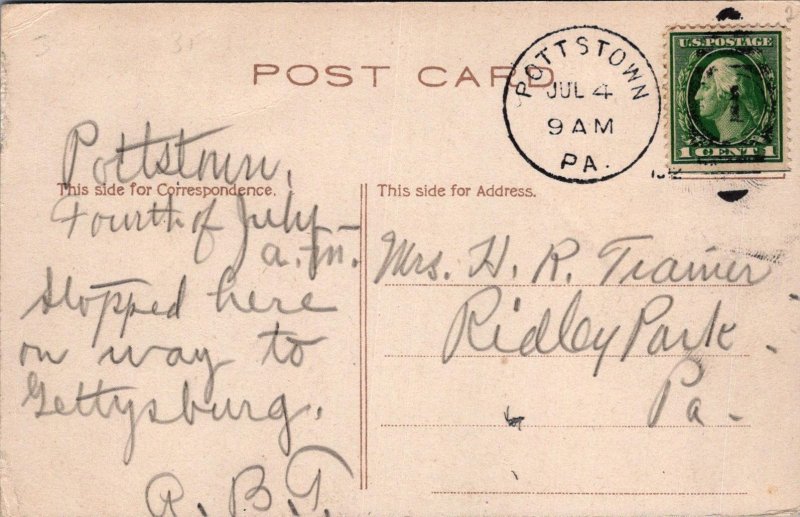 POST CARD
POTTSTOWN
JUL 4
9 AM
PA.
U.S. POSTAGE
1
1 CENT 1
Pottstown,
This side for Correspondence.
Fourth of July
a.m.
Stopped here
on way to
Gettysburg.
R. B. T.
This side for Address.
Mrs. H. R. Trainer
Ridley Park.
Pa.